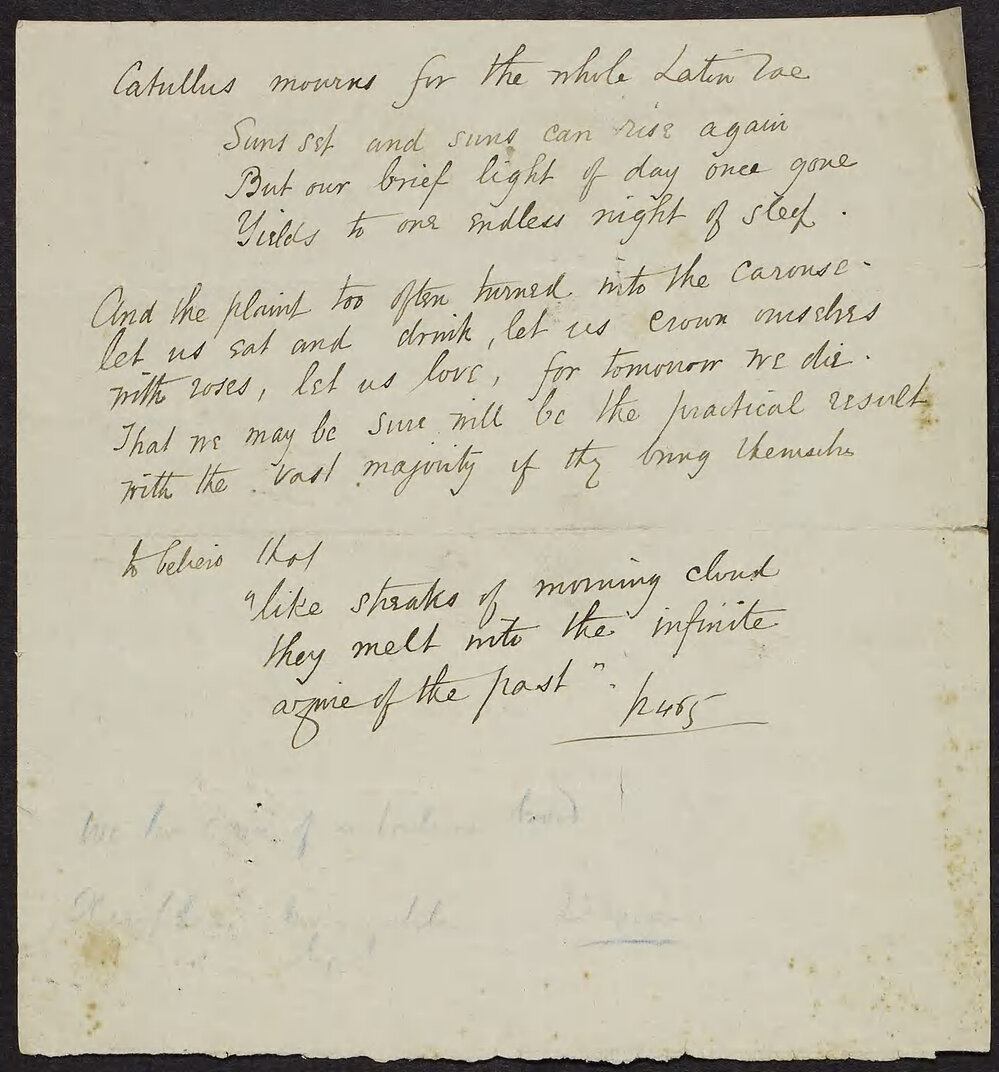 Catullus mourns for the whole Latin race
Suns set and suns can rise again
But our brief light of day once gone
Yields to one endless night of sleep.
And the plaint too often turned into the carouse-
let us eat and drink, let us crown ourselves
with roses, let us love, for tomorrow we die.
That we may be sure will be the practical result
with the vast majority if they bring themselves
to believe that
"like streaks of morning cloud
they melt into the infinite
azure of the past".
p465